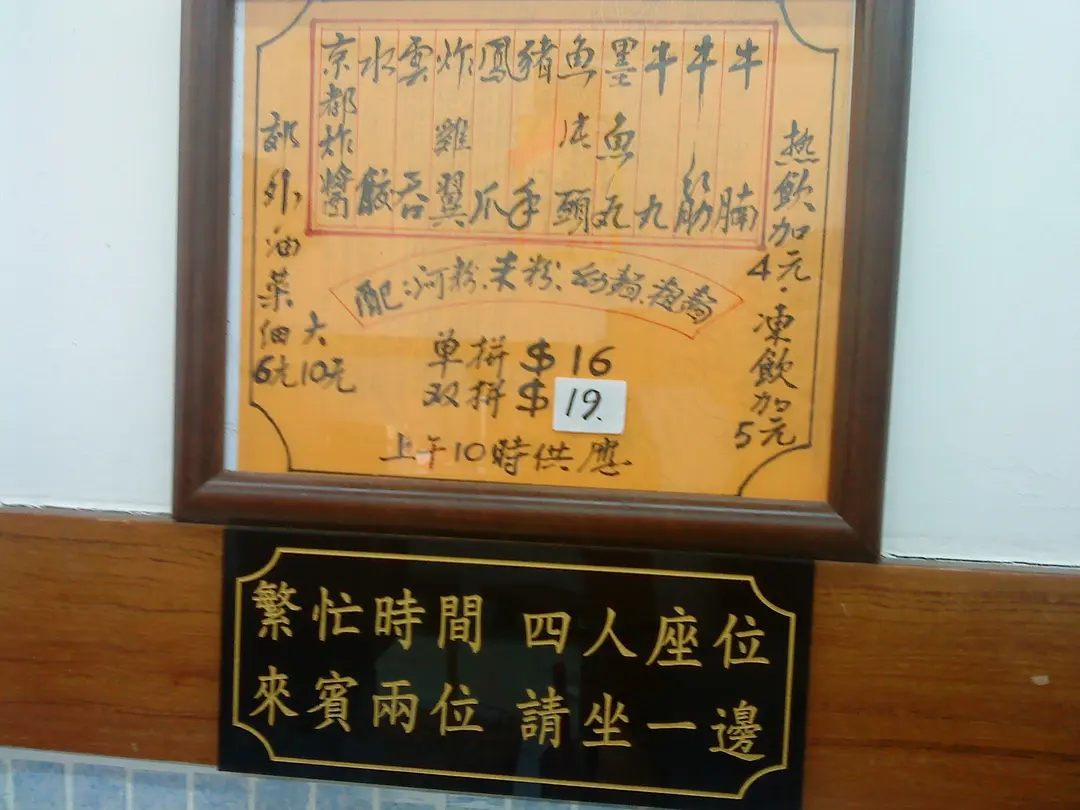 熱飲加4元.凍飲加5元
牛腩
牛筋
牛丸
墨魚丸
魚片頭
豬手
鳳爪
炸雞翼
雲吞
水餃
京都炸醬
郊外油菜
大10元
細6元
配:河粉.米粉.幼麵.粗麵
单拼 $16
双拼 $19.
上午10時供應
繁忙時間 四人座位
來賓兩位 請坐一邊